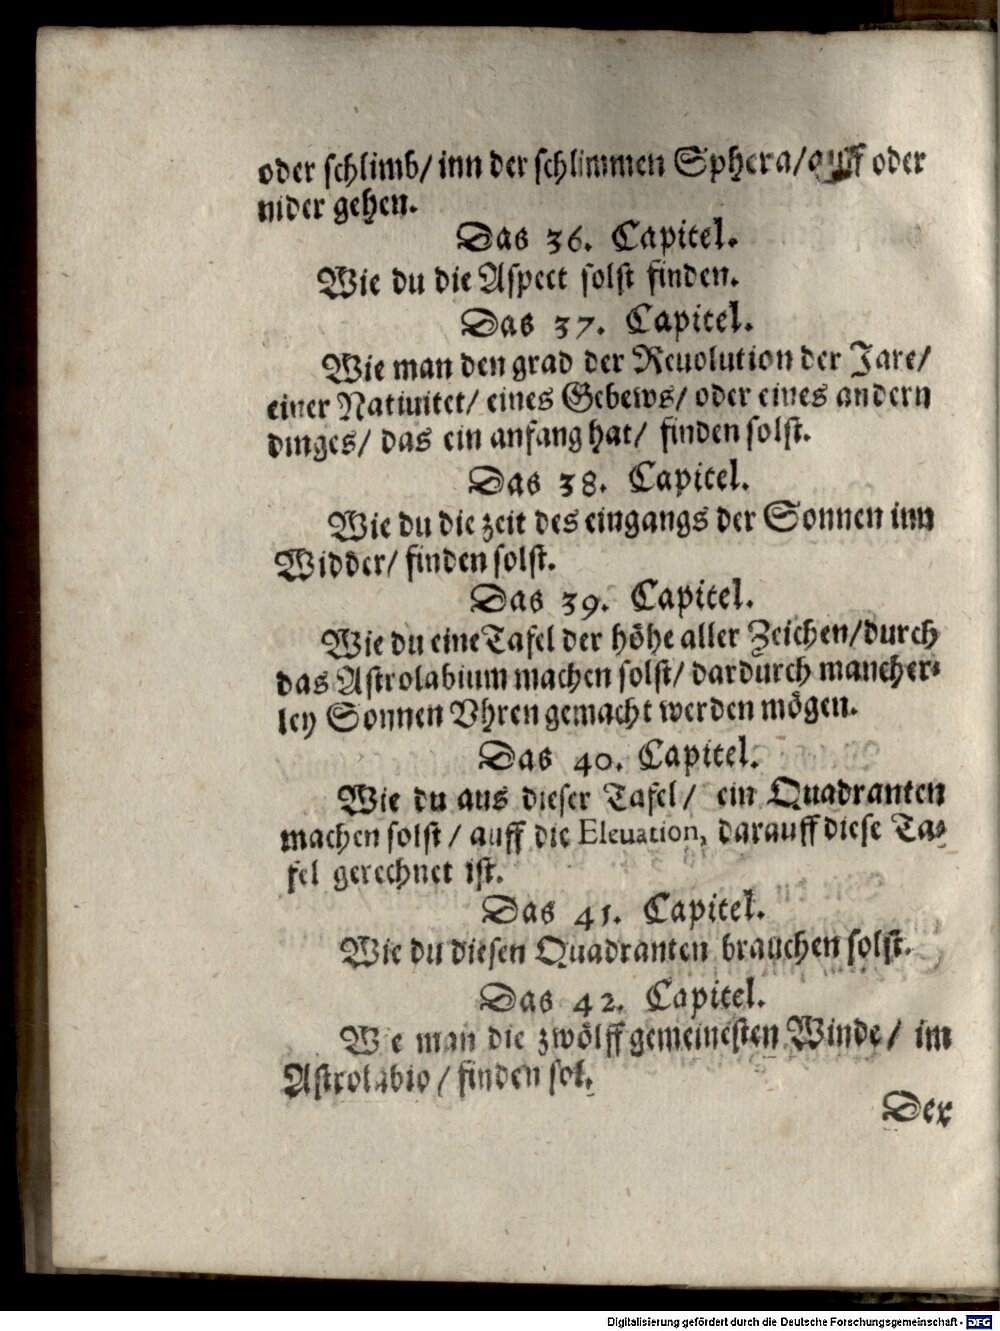 oder schlimb/ inn der schlimmen Sphera/ auff oder
nider gehen.
Das 36. Capitel.
Wie du die Aspect solst finden.
Das 37. Capitel.
Wie man den grad der Reuolution der Jare/
einer Natiuitet/ eines Gebews/ oder eines andern
dinges/ das ein anfang hat/ finden solst.
Das 38. Capitel.
Wie du die zeit des eingangs der Sonnen inn
Widder/ finden solst.
Das 39. Capitel.
Wie du eine Tafel der höhe aller Zeichen/ durch
das Astrolabium machen solst/ dardurch mancher-
ley Sonnen Vhren gemacht werden mögen.
Das 40. Capitel.
Wie du aus dieser Tafel/ ein Quadranten
machen solst/ auff die Eleuation, darauff diese Ta-
fel gerechnet ist.
Das 41. Capitel.
Wie du diesen Quadranten brauchen solst.
Das 42. Capitel.
Wie man die zwölff gemeinesten Winde/ im
Astrolabio/ finden sol.
Der
Digitalisierung gefördert durch die Deutsche Forschungsgemeinschaft - DFG